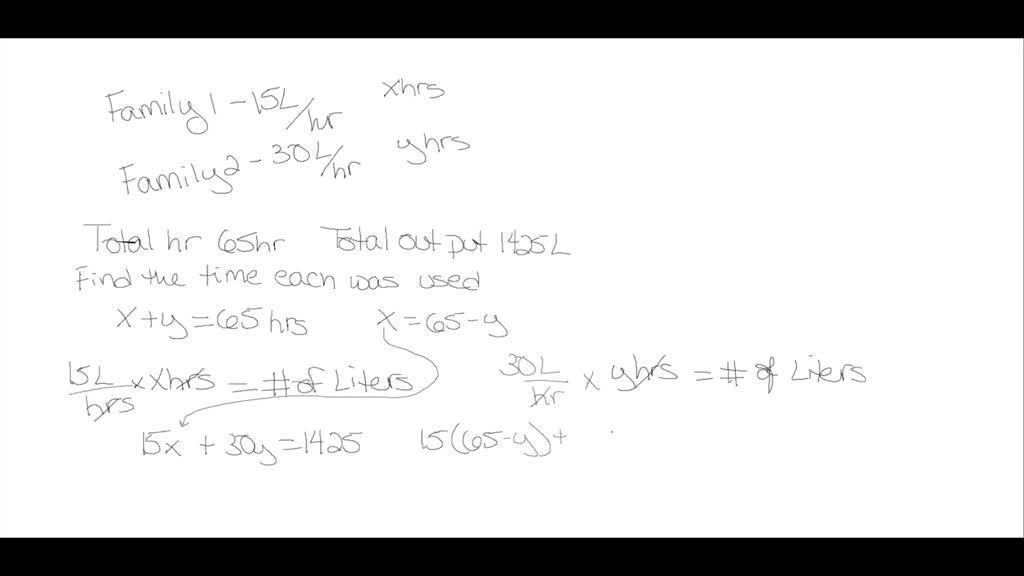 Family 1 - 15L/hr xhrs
Family 2 - 30L/hr yhrs
Total hr 65hr Total out put 1425L
Find the time each was used
x+y=65hrs x=65-y
15L/hrs x xhrs = # of Liters 30L/hr x yhrs = # of Liters
15x + 30y = 1425 15(65-y)+